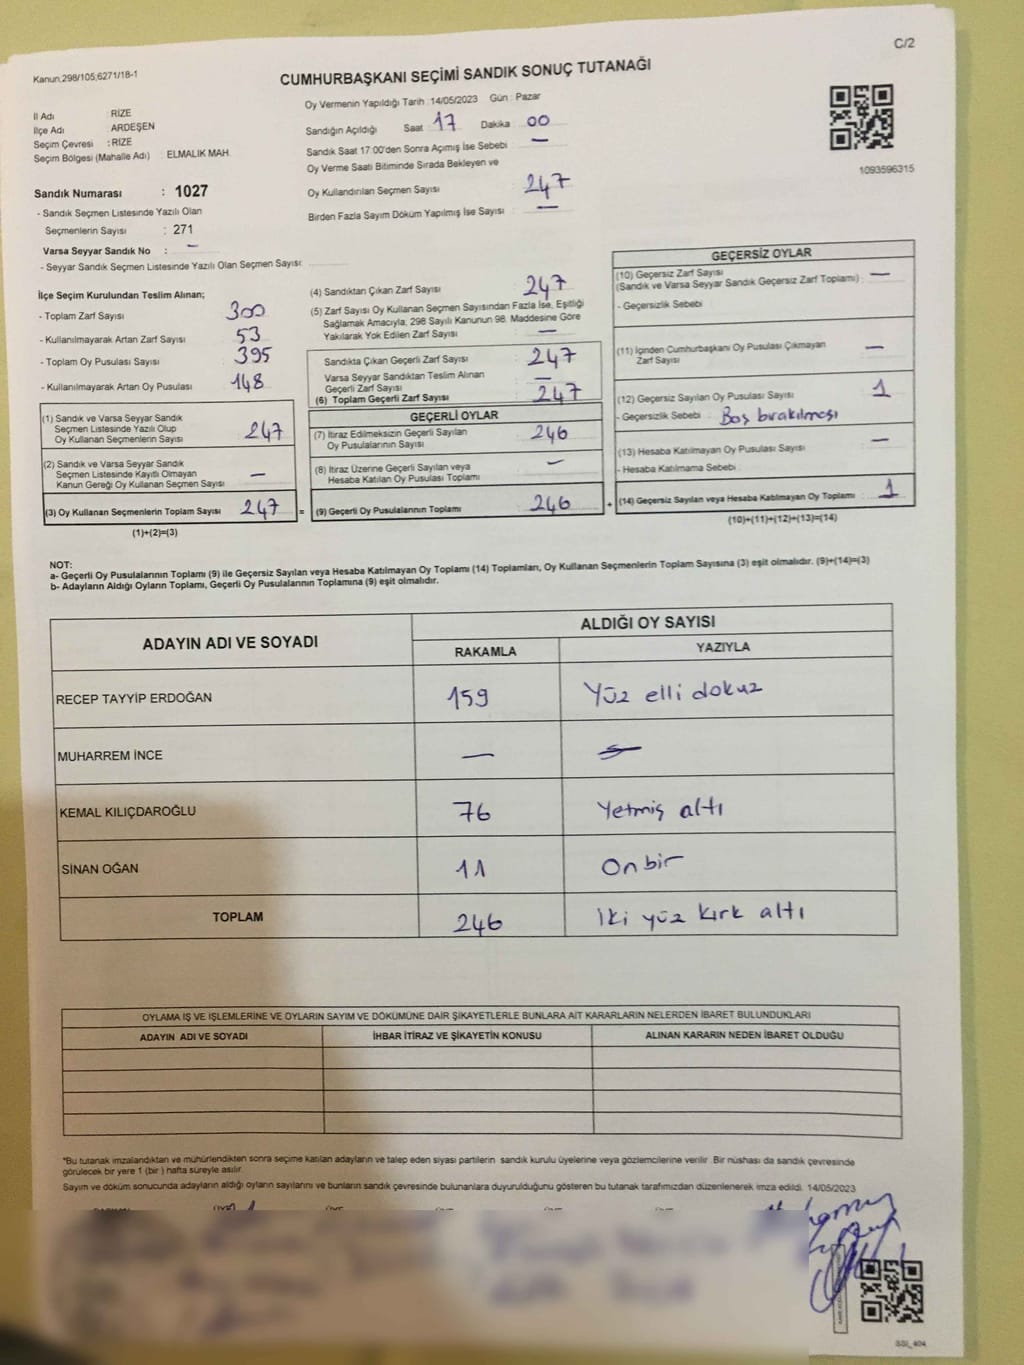 C/2
Kanun;298/105;6271/18-1
CUMHURBAŞKANI SEÇİMİ SANDIK SONUÇ TUTANAĞI
İl Adı : RİZE
İlçe Adı : ARDEŞEN
Seçim Çevresi : RİZE
Seçim Bölgesi (Mahalle Adı) : ELMALIK MAH.
Sandık Numarası : 1027
- Sandık Seçmen Listesinde Yazılı Olan
Seçmenlerin Sayısı : 271
Varsa Seyyar Sandık No : —
- Seyyar Sandık Seçmen Listesinde Yazılı Olan Seçmen Sayısı:
Oy Vermenin Yapıldığı Tarih :14/05/2023 Gün : Pazar
Sandığın Açıldığı Saat 17 Dakika 00
Sandık Saat 17:00'den Sonra Açımış İse Sebebi : —
Oy Verme Saati Bitiminde Sırada Bekleyen ve
Oy Kullandırılan Seçmen Sayısı : 247
Birden Fazla Sayım Döküm Yapılmış İse Sayısı : —
1093596315
İlçe Seçim Kurulundan Teslim Alınan;
- Toplam Zarf Sayısı : 300
- Kullanılmayarak Artan Zarf Sayısı : 53
- Toplam Oy Pusulası Sayısı : 395
- Kullanılmayarak Artan Oy Pusulası : 148
(1) Sandık ve Varsa Seyyar Sandık
Seçmen Listesinde Yazılı Olup
Oy Kullanan Seçmenlerin Sayısı : 247
(2) Sandık ve Varsa Seyyar Sandık
Seçmen Listesinde Kayıtlı Olmayan
Kanun Gereği Oy Kullanan Seçmen Sayısı : —
(3) Oy Kullanan Seçmenlerin Toplam Sayısı : 247 =
(1)+(2)=(3)
(4) Sandıktan Çıkan Zarf Sayısı : 247
(5) Zarf Sayısı Oy Kullanan Seçmen Sayısından Fazla İse, Eşitliği
Sağlamak Amacıyla, 298 Sayılı Kanunun 98. Maddesine Göre
Yakılarak Yok Edilen Zarf Sayısı : —
Sandıkta Çıkan Geçerli Zarf Sayısı : 247
Varsa Seyyar Sandıktan Teslim Alınan
Geçerli Zarf Sayısı : —
(6) Toplam Geçerli Zarf Sayısı : 247
GEÇERLİ OYLAR
(7) İtiraz Edilmeksizin Geçerli Sayılan
Oy Pusulalarının Sayısı : 246
(8) İtiraz Üzerine Geçerli Sayılan veya
Hesaba Katılan Oy Pusulası Toplamı : —
(9) Geçerli Oy Pusulalarının Toplamı : 246 +
GEÇERSİZ OYLAR
(10) Geçersiz Zarf Sayısı
(Sandık ve Varsa Seyyar Sandık Geçersiz Zarf Toplamı) : —
- Geçersizlik Sebebi :
(11) İçinden Cumhurbaşkanı Oy Pusulası Çıkmayan
Zarf Sayısı : —
(12) Geçersiz Sayılan Oy Pusulası Sayısı : 1
- Geçersizlik Sebebi : Boş bırakılması
(13) Hesaba Katılmayan Oy Pusulası Sayısı : —
- Hesaba Katılmama Sebebi :
(14) Geçersiz Sayılan veya Hesaba Katılmayan Oy Toplamı : 1
(10)+(11)+(12)+(13)=(14)
NOT:
a- Geçerli Oy Pusulalarının Toplamı (9) ile Geçersiz Sayılan veya Hesaba Katılmayan Oy Toplamı (14) Toplamları, Oy Kullanan Seçmenlerin Toplam Sayısına (3) eşit olmalıdır. (9)+(14)=(3)
b- Adayların Aldığı Oyların Toplamı, Geçerli Oy Pusulalarının Toplamına (9) eşit olmalıdır.
ADAYIN ADI VE SOYADI ALDIĞI OY SAYISI
RAKAMLA YAZIYLA
RECEP TAYYİP ERDOĞAN 159 Yüz elli dokuz
MUHARREM İNCE —
KEMAL KILIÇDAROĞLU 76 Yetmiş altı
SİNAN OĞAN 11 On bir
TOPLAM 246 İki yüz kırk altı
OYLAMA İŞ VE İŞLEMLERİNE VE OYLARIN SAYIM VE DÖKÜMÜNE DAİR ŞİKAYETLERLE BUNLARA AİT KARARLARIN NELERDEN İBARET BULUNDUKLARI
ADAYIN ADI VE SOYADI İHBAR İTİRAZ VE ŞİKAYETİN KONUSU ALINAN KARARIN NEDEN İBARET OLDUĞU
*Bu tutanak imzalandıktan ve mühürlendikten sonra seçime katılan adayların ve talep eden siyasi partilerin sandık kurulu üyelerine veya gözlemcilerine verilir. Bir nüshası da sandık çevresinde
görülecek bir yere 1 (bir ) hafta süreyle asılır.
Sayım ve döküm sonucunda adayların aldığı oyların sayılarını ve bunların sandık çevresinde bulunanlara duyurulduğunu gösteren bu tutanak tarafımızdan düzenlenerek imza edildi. 14/05/2023
SSİ_404